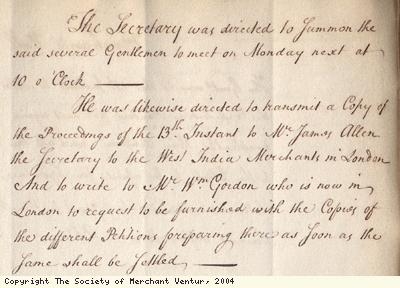 The Secretary was directed to Summon the
said several Gentlemen to meet on Monday next at
10 o'Clock
He was likewise directed to transmit a Copy of
the Proceedings of the 13th Instant to Mr. James Allen
the Secretary to the West India Merchants in London
And to write to Mr. Wm Gordon who is now in
London to request to be furnished with the Copies of
the different Petitions preparing there as soon as the
Same shall be Settled
Copyright The Society of Merchant Ventur, 2004